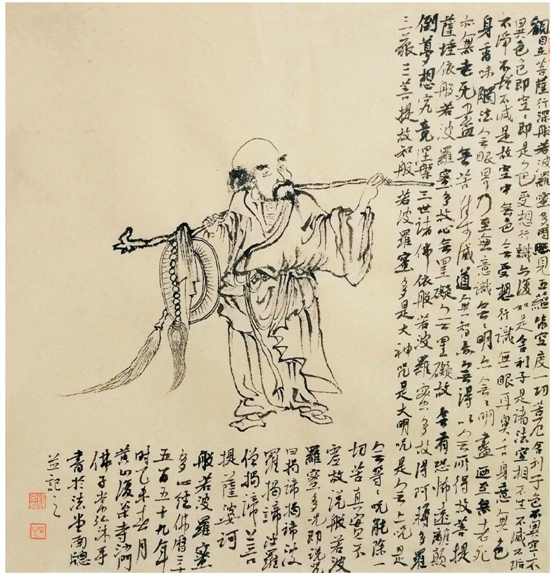 觀自在菩薩行深般若波羅蜜多時照見五蘊皆空度一切苦厄舍利子色不異空空不
異色色即空空即是色受想行識亦復如是舍利子是諸法空相不生不滅不垢
不淨不增不減是故空中無色無受想行識無眼耳鼻舌身意無色
身香味觸法無眼界乃至無意識無無明亦無無明盡乃至無老死
亦無老死盡無苦集滅道無智亦無得以無所得故菩提
薩埵依般若波羅蜜多故心無罣礙無罣礙故無有恐怖遠離顛
倒夢想究竟涅槃三世諸佛依般若波羅蜜多故得阿耨多羅
三藐三菩提故知般若波羅蜜多是大神咒是大明咒是無上咒是
無等等咒能除一
切苦真實不
虛故說般若波
羅蜜多咒即說咒
曰揭諦揭諦波
羅揭諦波羅
僧揭諦菩
提薩婆訶
般若波羅蜜
多心經佛曆二千
五百五十九年
時乙未月
黃山寺沙門
佛子常弘沐手
書於法堂南窗
並記之